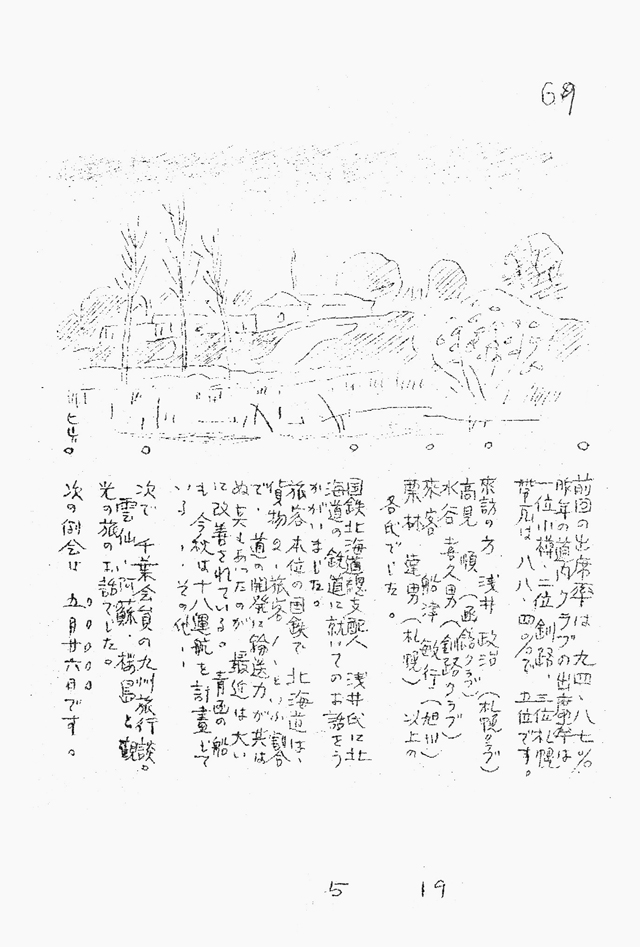 69
前回の出席率は九四・八七%
昨年の道内クラブの出席率は
一位小樽、二位釧路、三位札幌
帯広は八八・四〇%で五位です。
来訪の方 浅井 政治(札幌クラブ)
高見 順(函館クラブ)
水谷 喜久男(釧路クラブ)
来客 船津 敏行(旭川)
栗林 蓮男(札幌)以上の
各氏でした。
国鉄北海道總支配人 浅井氏に北
海道の鉄道に就いてのお話をう
かがいました。
旅客本位の国鉄で 北海道は、
貨物2、旅客1という割合
で、道の開発に輸送力が共は
ぬ点もあったのが 最近は大い
に改善されている。青函の船
も 今秋は十八運航を計畫して
いる、、、その他、
次で 千葉会員の九州旅行談。
雲仙、阿蘇、桜島と観
光の旅のお話でした。
次の例会は 五月廿六日です。
5 19